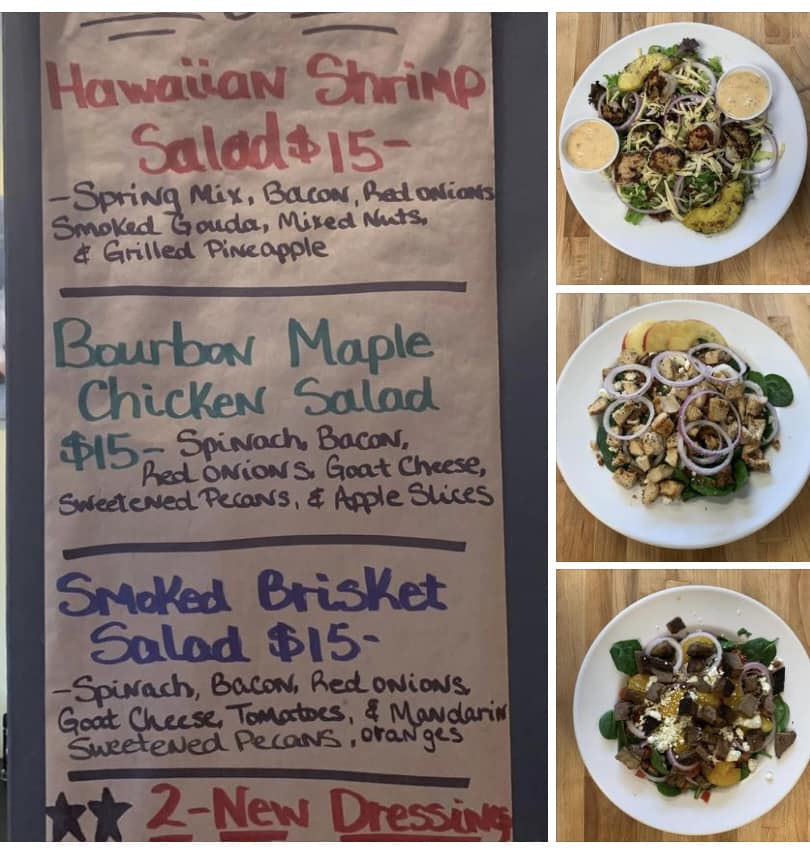 Hawaiian Shrimp
Salad $15-
-Spring Mix, Bacon, Red onions
Smoked Gouda, Mixed Nuts,
& Grilled Pineapple
Bourbon Maple
Chicken Salad
$15- Spinach, Bacon,
Red onions, Goat Cheese,
Sweetened Pecans, & Apple Slices
Smoked Brisket
Salad $15-
-Spinach, Bacon, Red onions,
Goat Cheese, Tomatoes, & Mandarin
Sweetened Pecans, oranges
2-New Dressing